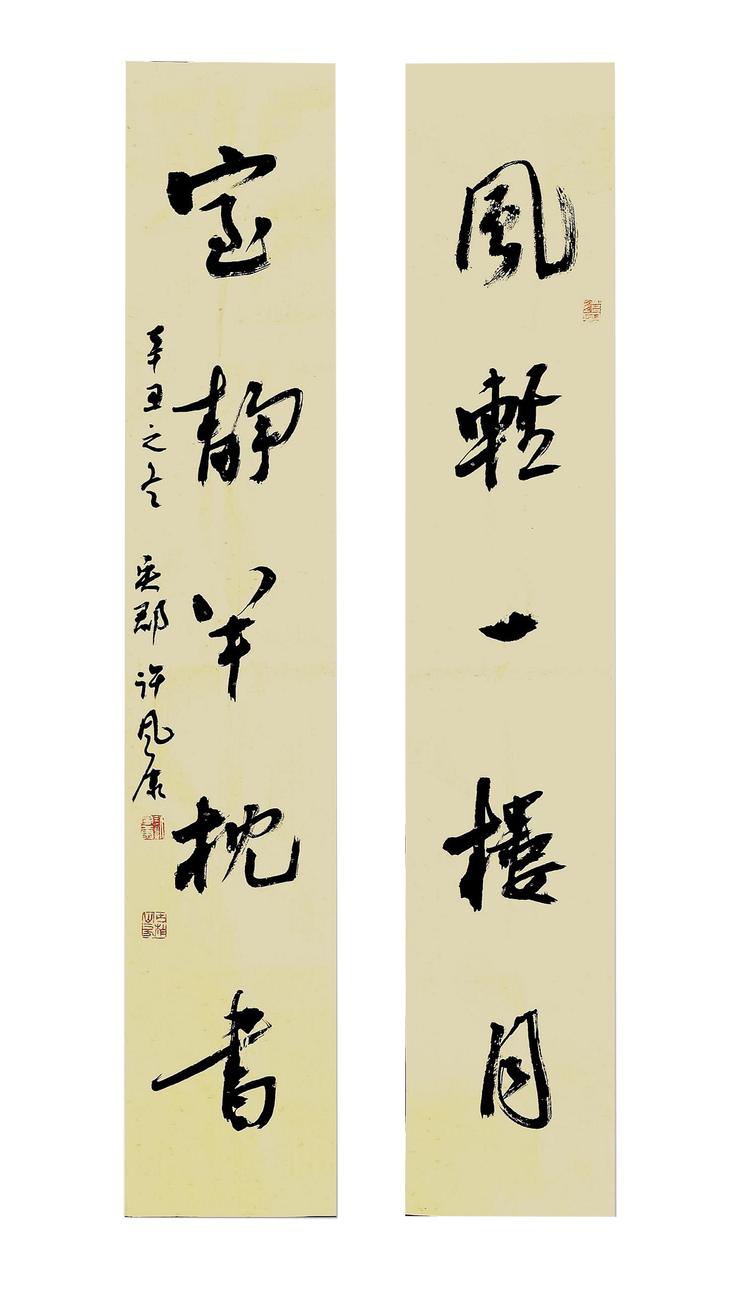 風輕一樓月
室靜半枕書
辛丑之冬 吴郡 许风康